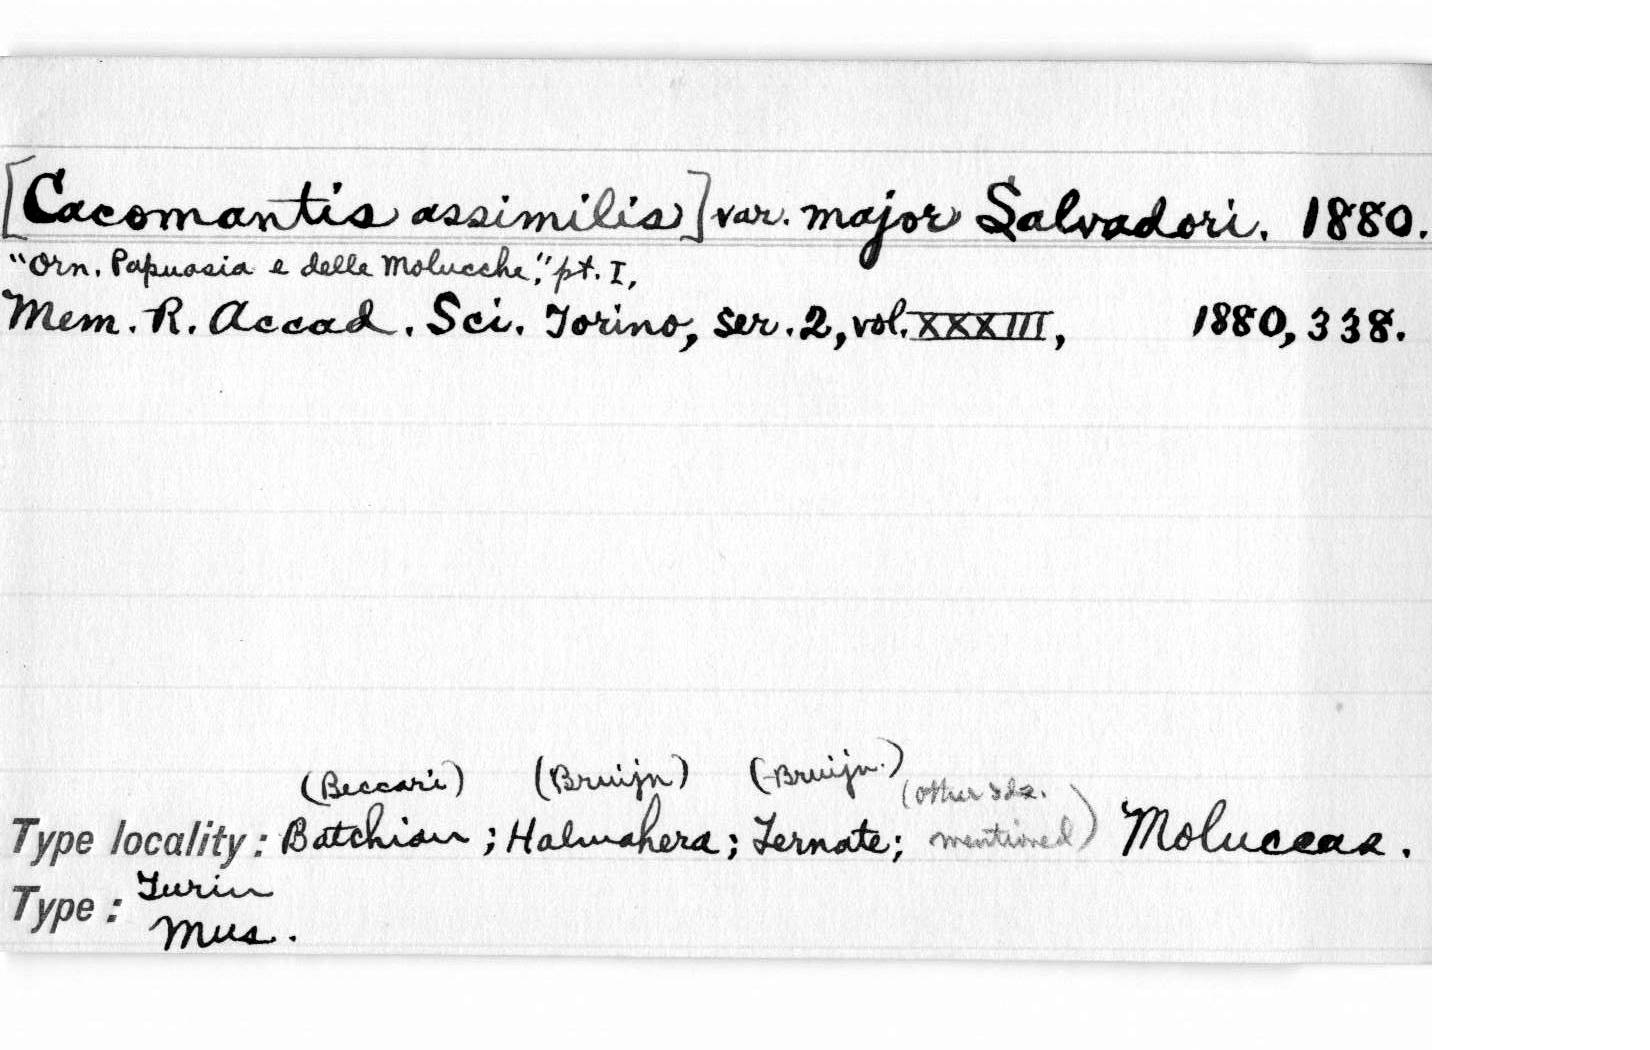 [Cacomantis assimilis] var. major Salvadori. 1880.
"Orn. Papuasia e delle Molucche," pt. I,
Mem. R. Accad. Sci. Torino, ser. 2, vol. XXXIII, 1880, 338.
(Beccari) (Bruijn) (Bruijn.) (other ids.
Type locality: Batchian; Halmahera; Ternate; mentioned) Moluccas.
Type: Turin
Mus.